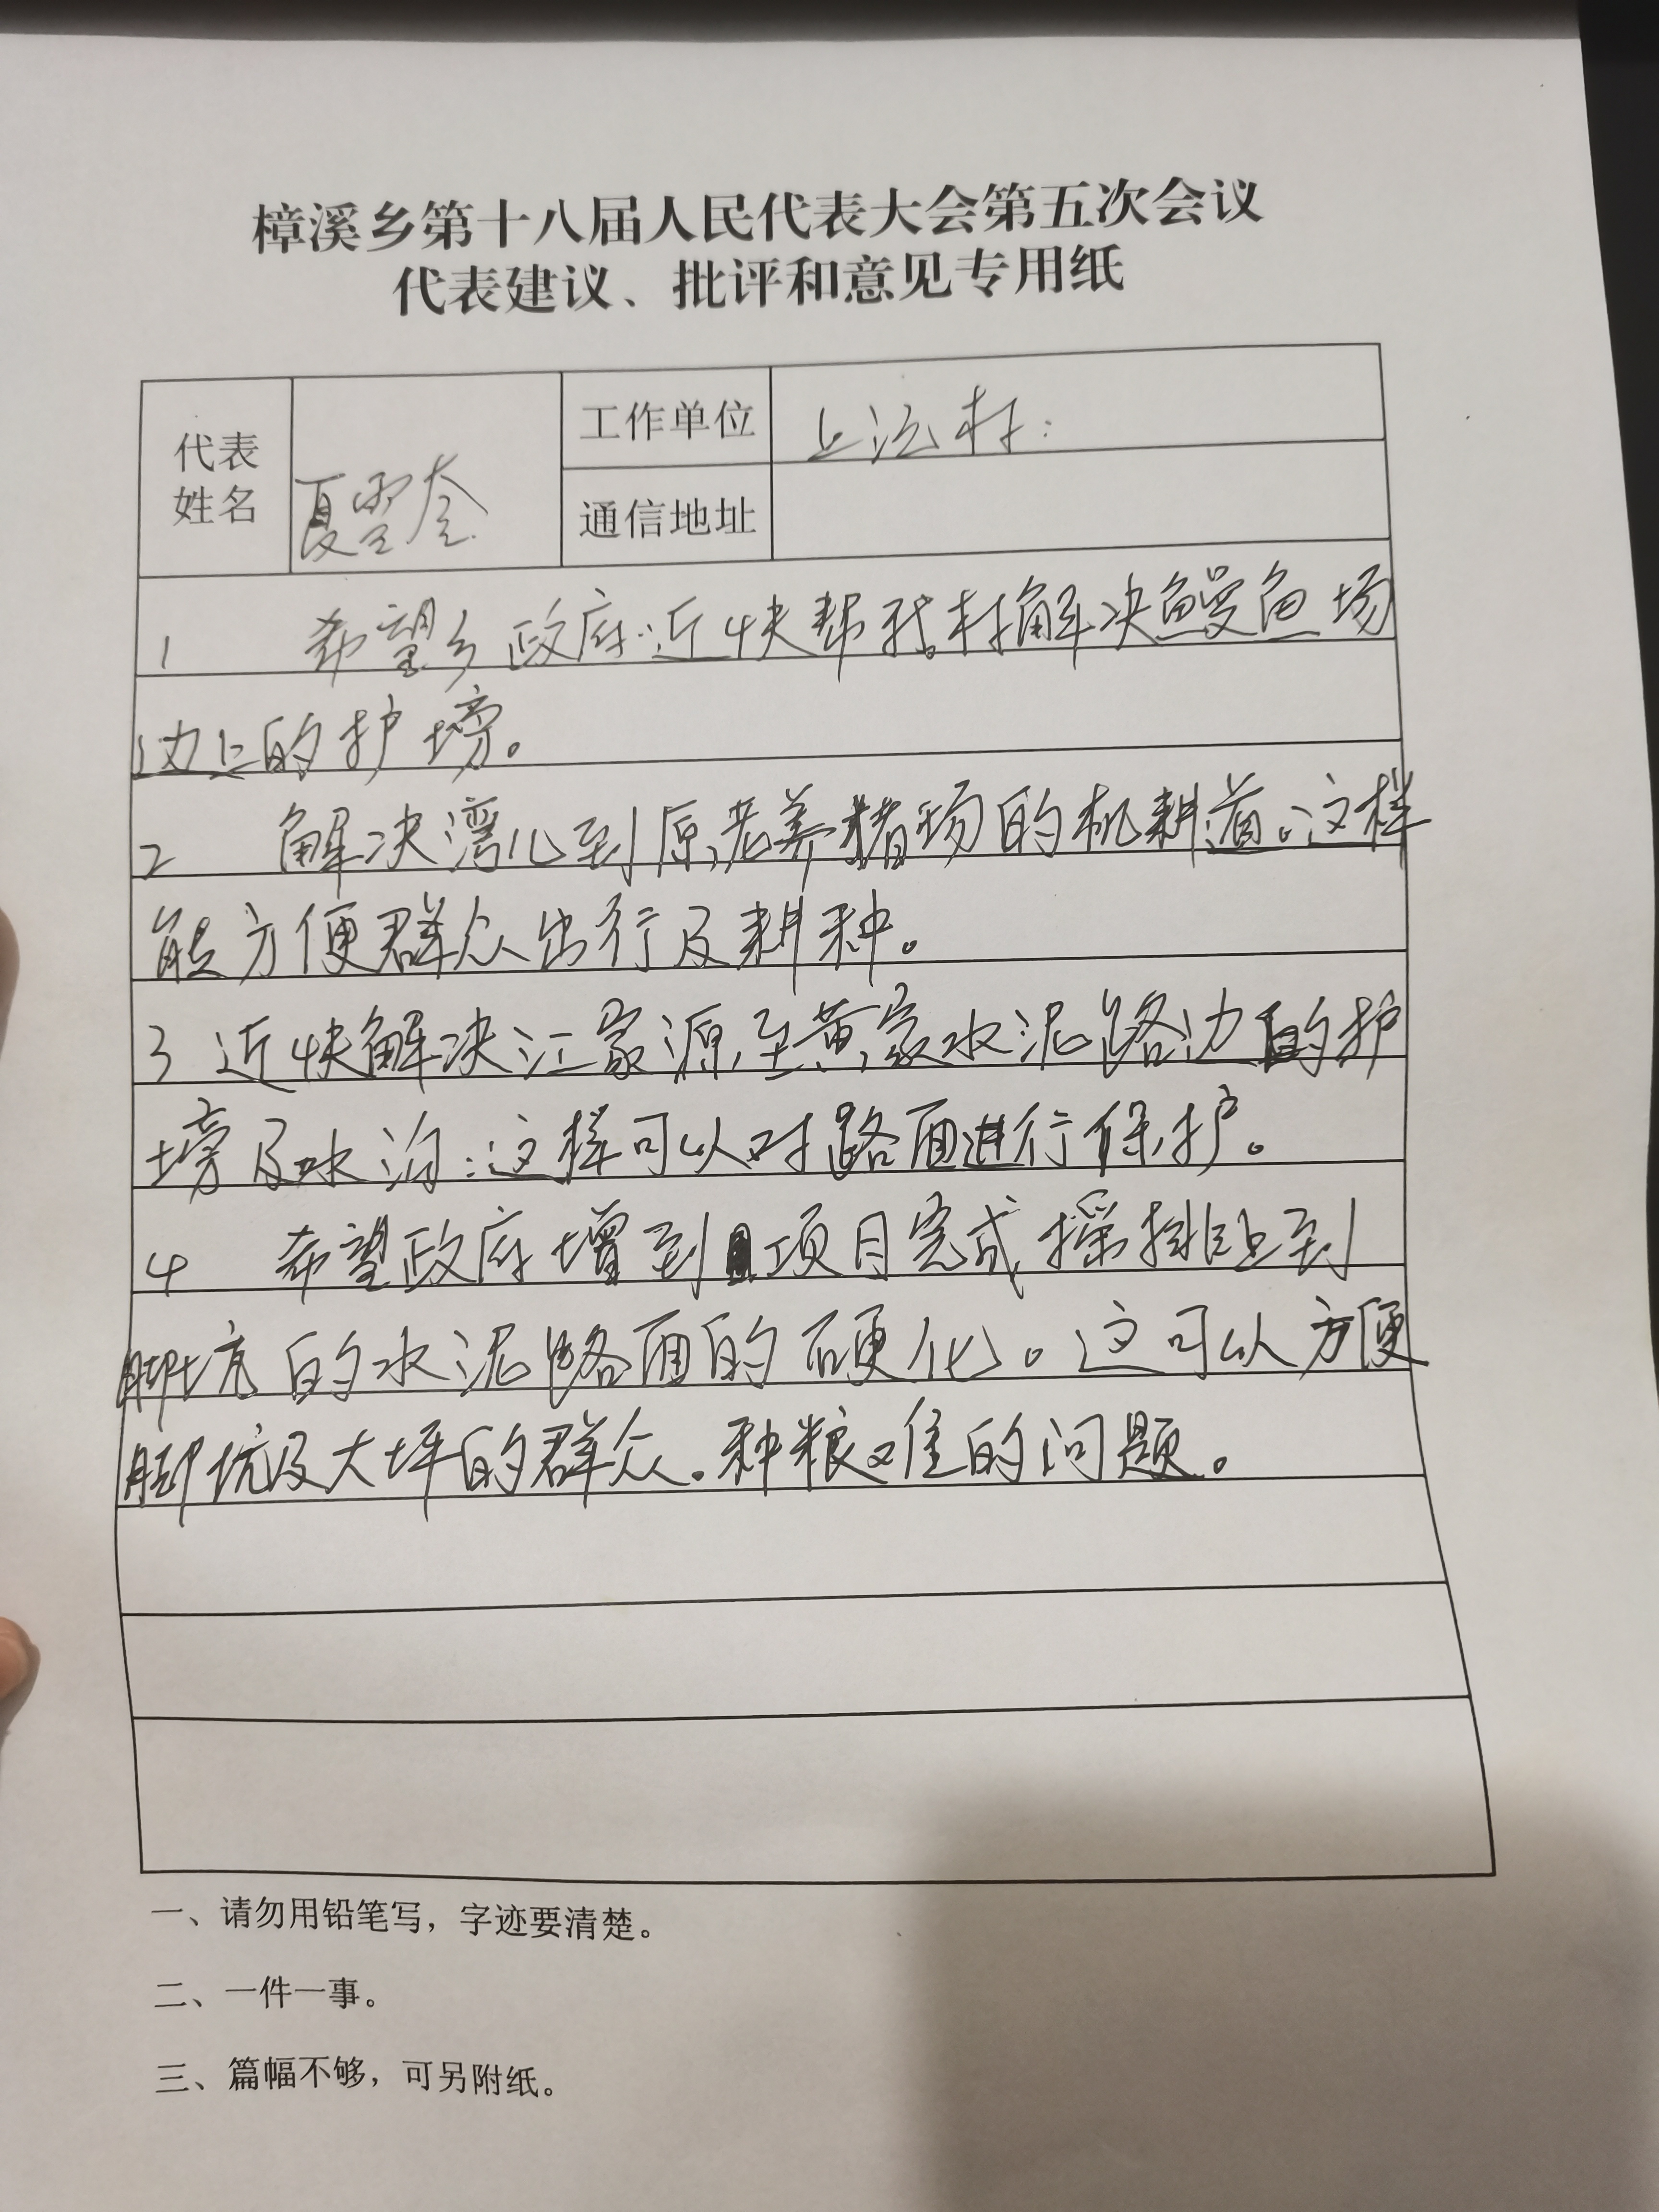 樟溪乡第十八届人民代表大会第五次会议
代表建议、批评和意见专用纸
代表
姓名
夏雪
工作单位
上 村:
通信地址
1 希望乡政府近快帮我村解决鳗鱼场
边上的护塝。
2 解决湾儿到原老养猪场的机耕道。这样
能方便群众出行及耕种。
3 近快解决江家源至黄家水泥路边的护
塝及水沟:这样可以对路面进行保护。
4 希望政府增到项目完成 排上到
脚坑的水泥路面的硬化。这可以方便
脚坑及大坪的群众。种粮难的问题。
一、请勿用铅笔写，字迹要清楚。
二、一件一事。
三、篇幅不够，可另附纸。